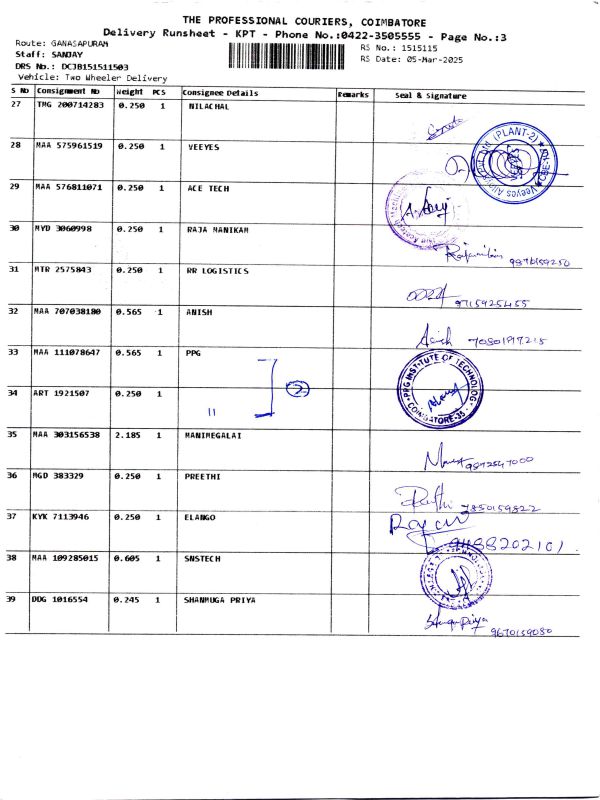 THE PROFESSIONAL COURIERS, COIMBATORE
Delivery Runsheet - KPT - Phone No.:0422-3505555 - Page No.:3
Route: GANASAPURAM
RS No.: 1515115
Staff: SANJAY
RS Date: 05-Mar-2025
DRS No.: DCJB151511503
Vehicle: Two Wheeler Delivery
S No Consignment No Weight PCS Consignee Details Remarks Seal & Signature
27 TMG 200714283 0.250 1 NILACHAL
28 MAA 575961519 0.250 1 VEEYES
(PLANT-2)
29 MAA 576811071 0.250 1 ACE TECH
30 MYD 3060998 0.250 1 RAJA MANIKAM
31 MTR 2575843 0.250 1 RR LOGISTICS
9715925455
32 MAA 707038180 0.565 1 ANISH
33 MAA 111078647 0.565 1 PPG
PPG INSTITUTE OF TECHNOLOGY
COIMBATORE-35
34 ART 1921507 0.250 1 11 2
35 MAA 303156538 2.185 1 MANIMEGALAI
36 MGD 383329 0.250 1 PREETHI
7850159822
37 KYK 7113946 0.250 1 ELANGO
38 MAA 109285015 0.605 1 SNSTECH
39 DDG 1016554 0.245 1 SHANMUGA PRIYA
9670159080